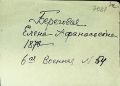 7081
Береговая
Елена Афанасьевна
1878
6ая Военная № 54